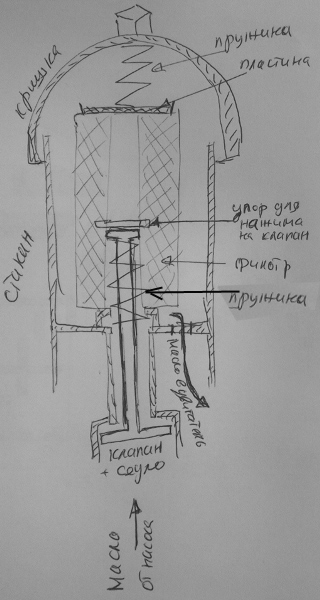 пружина
пластина
крышка
упор для
нажима
на клапан
стакан
фильтр
пружина
масло в двигатель
клапан
+ седло
Масло
от насоса